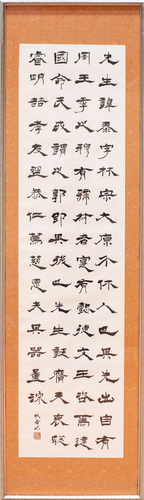 先生諱泰字林宗大原介休人也其先出自有
周王季之穆有虢叔者寔有懿德文王咨焉建
國命氏或謂之郭即其後也先生誕膺天衷聡
睿明喆孝友溫恭仁篤慈惠夫其器量深